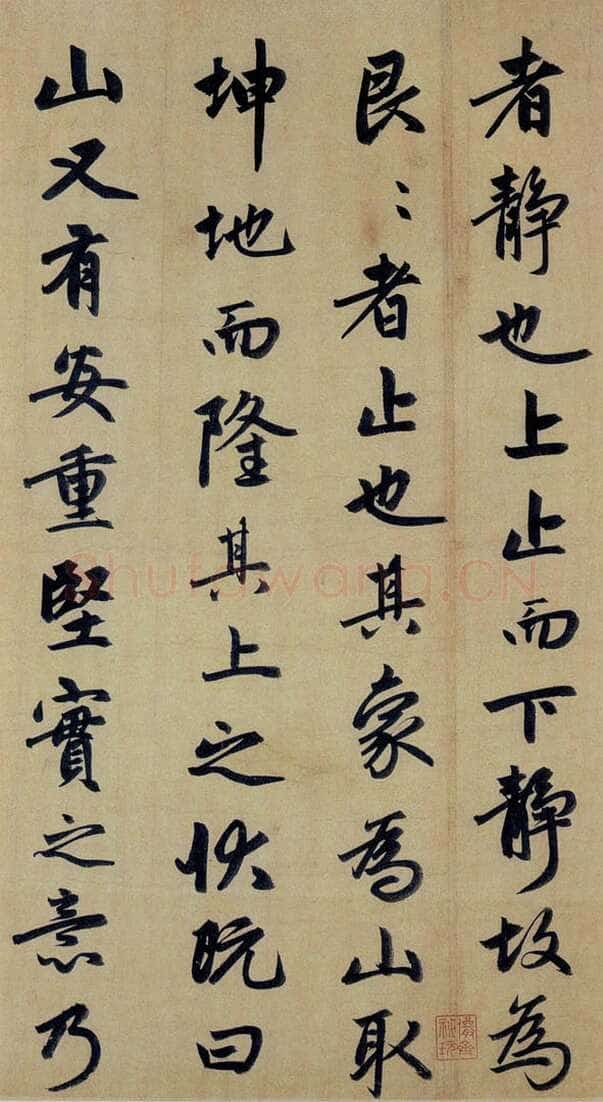 者静也上止而下静故為
艮〻者止也其象為山取
坤地而隆其上之状既曰
山又有安重堅實之意乃
Shufawang.CN